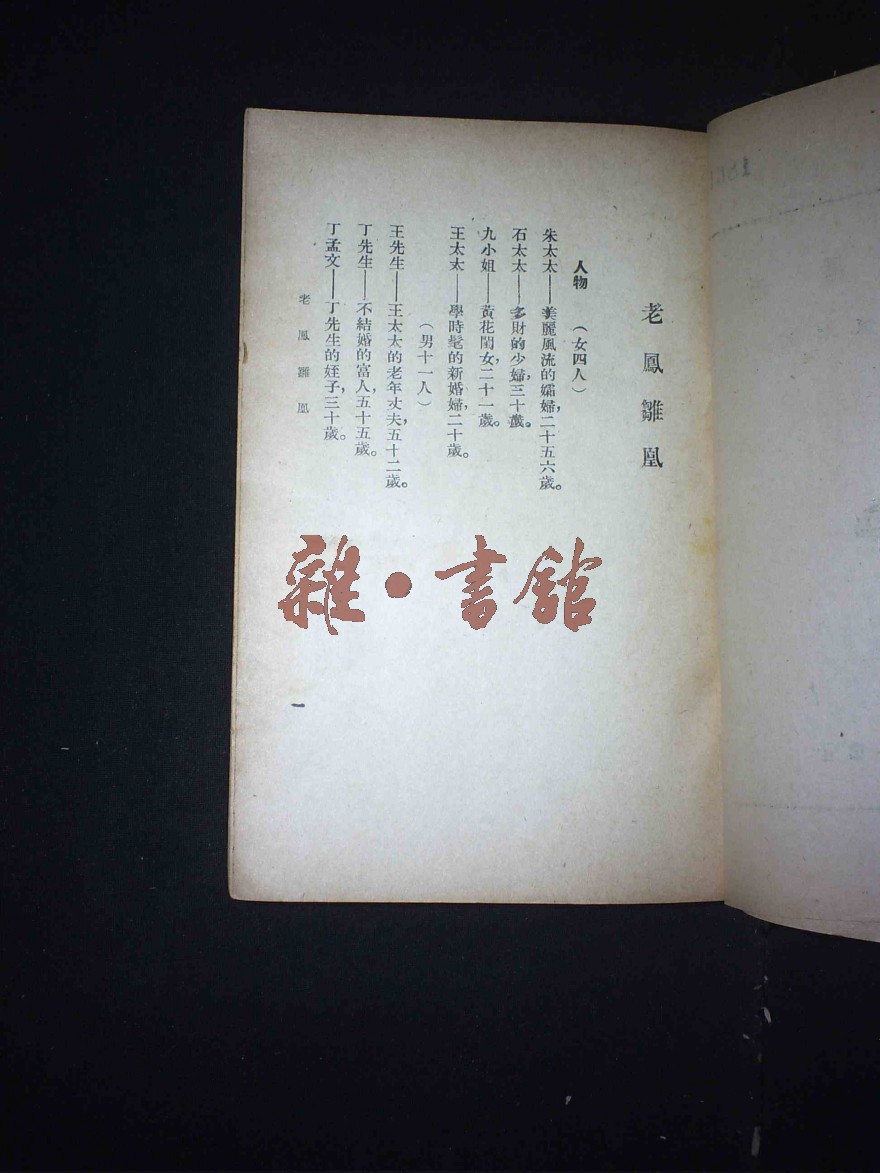 老鳳雛凰
人物　（女四人）
朱太太——美麗風流的孀婦，二十五六歲。
石太太——多財的少婦，三十歲。
九小姐——黃花閨女，二十一歲。
王太太——學時髦的新婚婦，二十歲。
（男十一人）
王先生——王太太的老年丈夫，五十二歲。
丁先生——不結婚的富人，五十五歲。
丁孟文——丁先生的姪子，三十歲。
老鳳雛凰
一
雜·書館